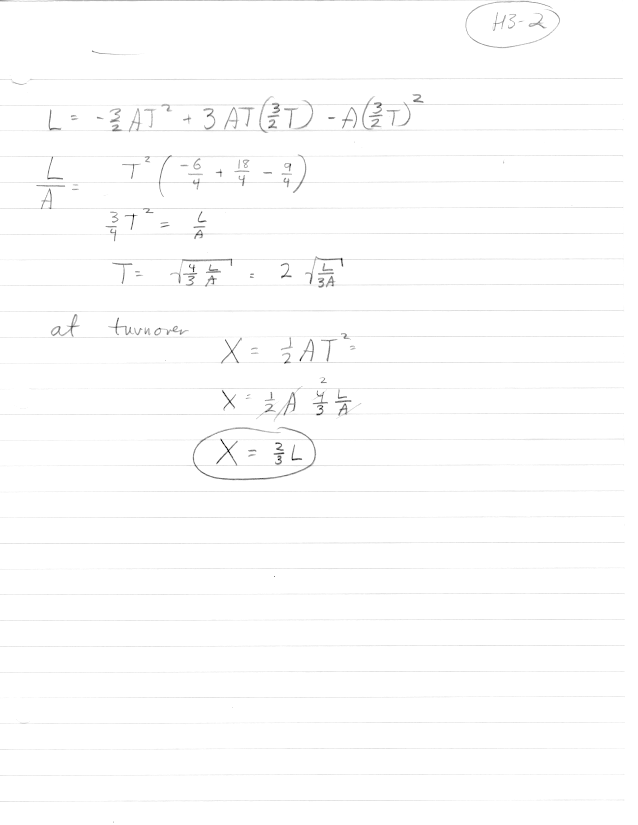 H3-2
L = -3/2 AT² + 3 AT(3/2 T) - A(3/2 T)²
L/A = T²(-6/4 + 18/4 - 9/4)
3/4 T² = L/A
T = √(4/3 L/A) = 2 √(L/3A)
at turnover
X = 1/2 AT² =
X = 1/2 A 4/3 L/A 2
X = 2/3 L